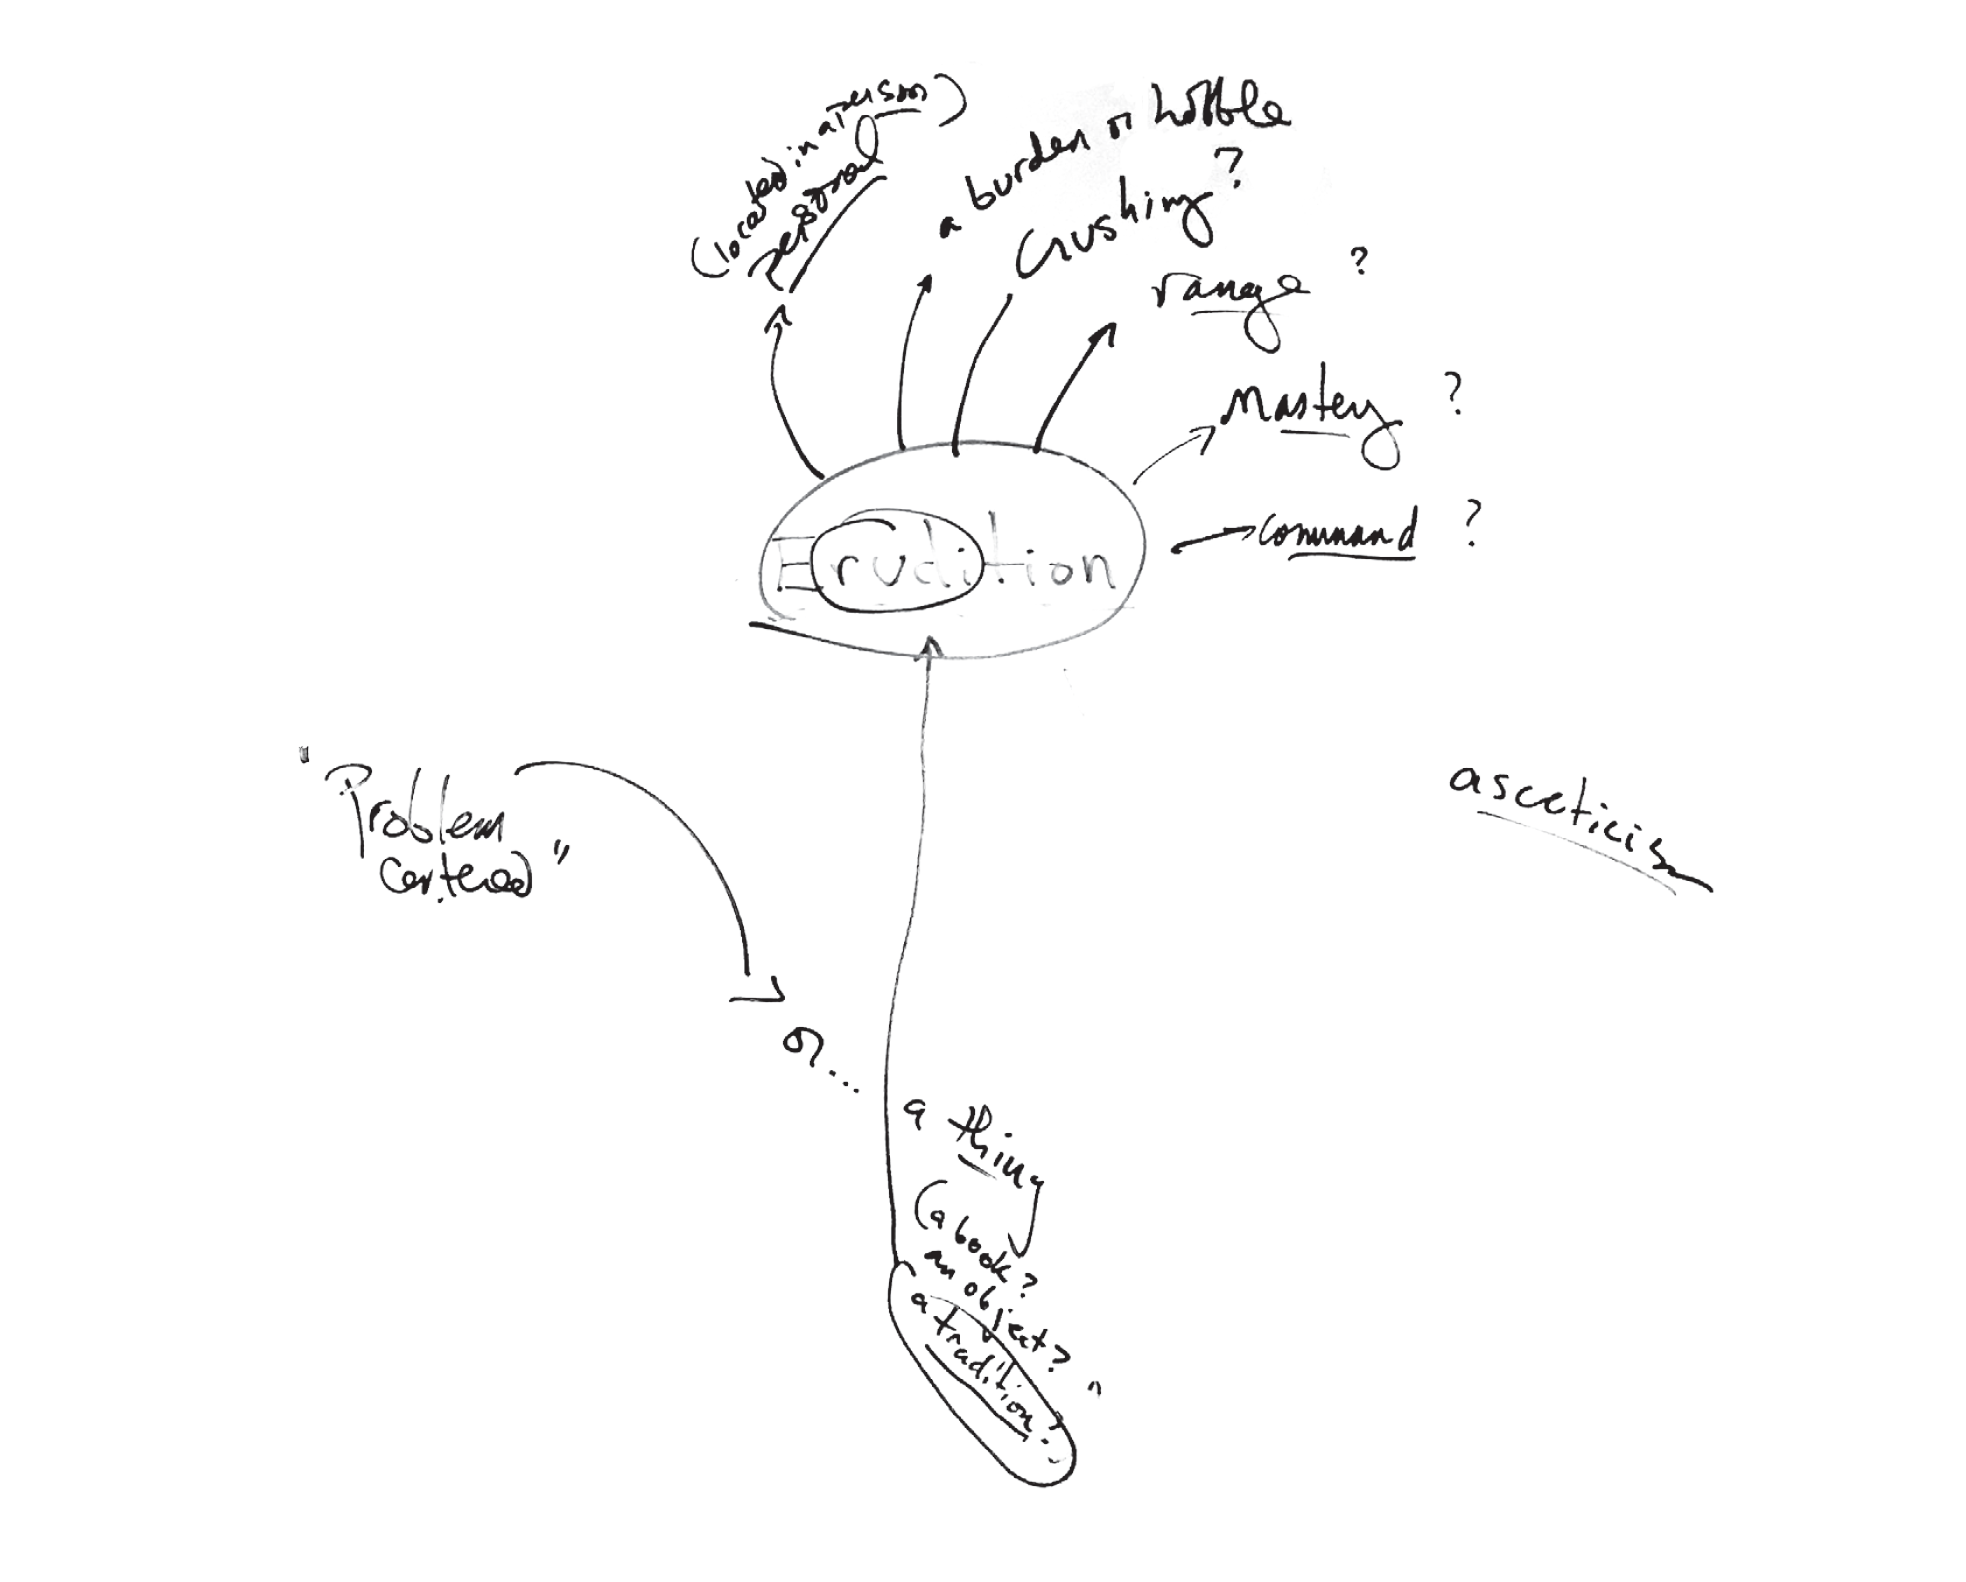 (located in a person)
personal
a burden or hobble
Crushing?
range ?
Mastery ?
command ?
Erudition
"Problem
centered"
asceticism
or...
a thing
(a book?
an object?
a tradition?